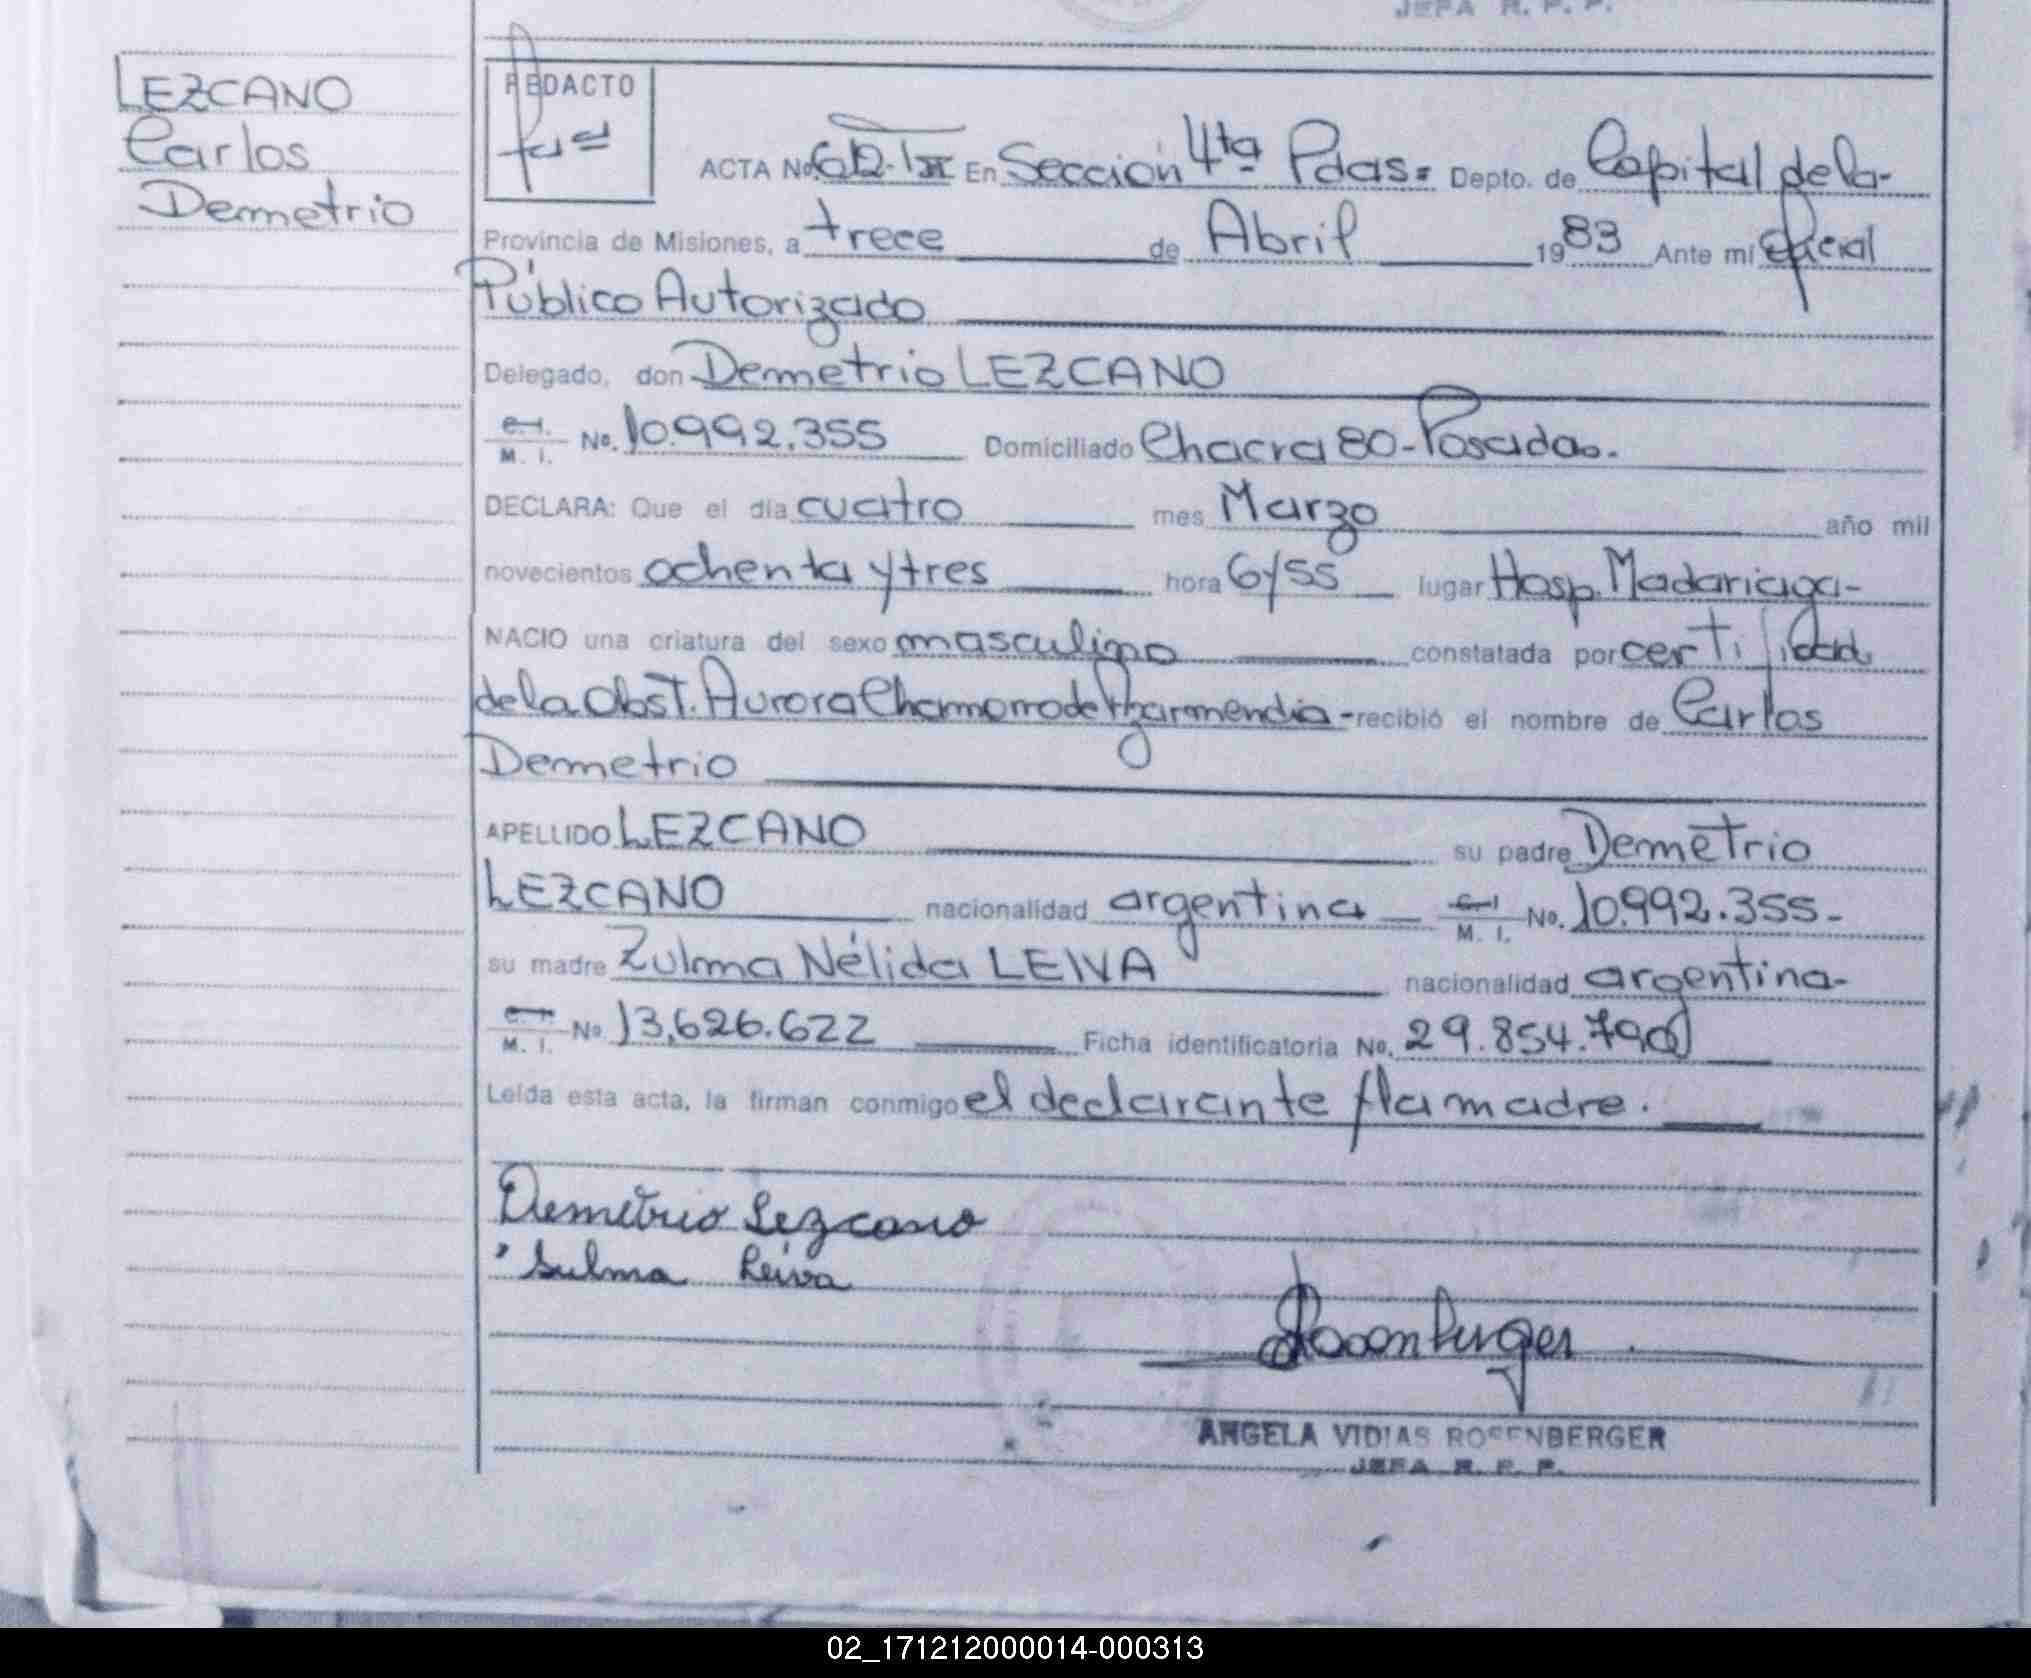 JEFA R. P. P.
LEZCANO
Carlos
Demetrio
REDACTO
ACTA No. En Sección 4ta Pdas= Depto. de Capital de la-
Provincia de Misiones, a trece de Abril 1983 Ante mí Oficial
Público Autorizado
Delegado, don Demetrio LEZCANO
C. I. M. I. No. 10.992.355 Domiciliado Chacra 80-Posadas.
DECLARA: Que el día cuatro mes Marzo año mil
novecientos ochenta y tres hora 6/55 lugar Hosp. Madariaga-
NACIO una criatura del sexo masculino constatada por
de la Obst. Aurora Chamorro de - recibió el nombre de Carlos
Demetrio
APELLIDO LEZCANO su padre Demetrio
LEZCANO nacionalidad argentina C. I. M. I. No. 10.992.355-
su madre Zulma Nélida LEIVA nacionalidad argentina-
C. I. M. I. No. 13,626.622 Ficha identificatoria No. 29.854.790
Leída esta acta, la firman conmigo el declarante y la madre.
Demetrio Lezcano
Sulma Leiva
Rosenberger
ANGELA VIDIAS ROSENBERGER
JEFA R. P. P.
02_171212000014-000313